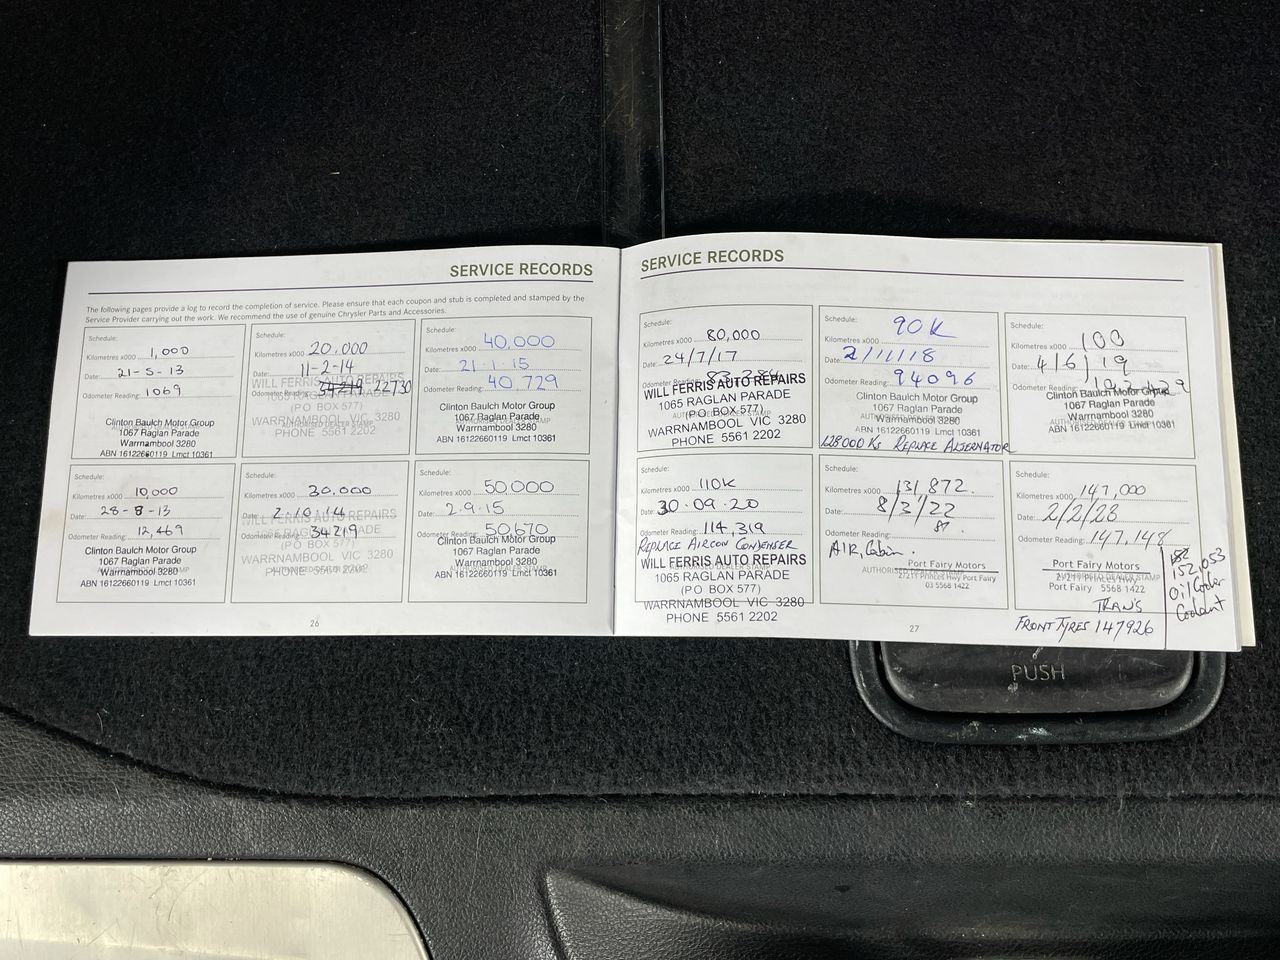 SERVICE RECORDS
The following pages provide a log to record the completion of service. Please ensure that each coupon and stub is completed and stamped by the
Service Provider carrying out the work. We recommend the use of genuine Chrysler Parts and Accessories.
Schedule:
Kilometres x000 1,000
Date: 21-5-13
Odometer Reading: 1069
Clinton Baulch Motor Group
1067 Raglan Parade
Warrnambool 3280
ABN 16122660119 Lmct 10361
Schedule:
Kilometres x000 20,000
Date: 11-2-14
Odometer Reading: 22730
WILL FERRIS AUTO REPAIRS
1065 RAGLAN PARADE
(PO BOX 577)
WARRNAMBOOL VIC 3280
AUTHORISED DEALER STAMP
PHONE 5561 2202
Schedule:
Kilometres x000 40,000
Date: 21.1.15
Odometer Reading: 40,729
Clinton Baulch Motor Group
1067 Raglan Parade
Warrnambool 3280
ABN 16122660119 Lmct 10361
Schedule:
Kilometres x000 10,000
Date: 28-8-13
Odometer Reading: 12,469
Clinton Baulch Motor Group
1067 Raglan Parade
Warrnambool 3280
ABN 16122660119 Lmct 10361
Schedule:
Kilometres x000 30,000
Date: 2.10.14
Odometer Reading: 34219
WILL FERRIS AUTO REPAIRS
1065 RAGLAN PARADE
(PO BOX 577)
WARRNAMBOOL VIC 3280
PHONE 5561 2202
Schedule:
Kilometres x000 50,000
Date: 2.9.15
Odometer Reading: 50670
Clinton Baulch Motor Group
1067 Raglan Parade
Warrnambool 3280
ABN 16122660119 Lmct 10361
26
SERVICE RECORDS
Schedule:
Kilometres x000 80,000
Date: 24/7/17
Odometer Reading:
WILL FERRIS AUTO REPAIRS
1065 RAGLAN PARADE
(PO BOX 577)
WARRNAMBOOL VIC 3280
PHONE 5561 2202
Schedule: 90K
Kilometres x000
Date: 2/11/18
Odometer Reading: 94096
Clinton Baulch Motor Group
1067 Raglan Parade
Warrnambool 3280
ABN 16122660119 Lmct 10361
128000 Ks REPLACE ALTERNATOR
Schedule:
Kilometres x000 100
Date: 4/6/19
Odometer Reading:
Clinton Baulch Motor Group
1067 Raglan Parade
Warrnambool 3280
ABN 16122660119 Lmct 10361
Schedule:
Kilometres x000 110K
Date: 30.09.20
Odometer Reading: 114,319
REPLACE AIRCON CONDENSER
WILL FERRIS AUTO REPAIRS
1065 RAGLAN PARADE
(PO BOX 577)
WARRNAMBOOL VIC 3280
PHONE 5561 2202
Schedule:
Kilometres x000 131,872.
Date: 8/3/22
Odometer Reading:
AIR, Cabin.
Port Fairy Motors
Port Fairy
03 5568 1422
Schedule:
Kilometres x000 147,000
Date: 2/2/23
Odometer Reading: 147,148
Port Fairy Motors
Port Fairy 5568 1422
TRANS
FRONT TYRES 147926
152,053
Oil Cooler
Coolant
27
PUSH